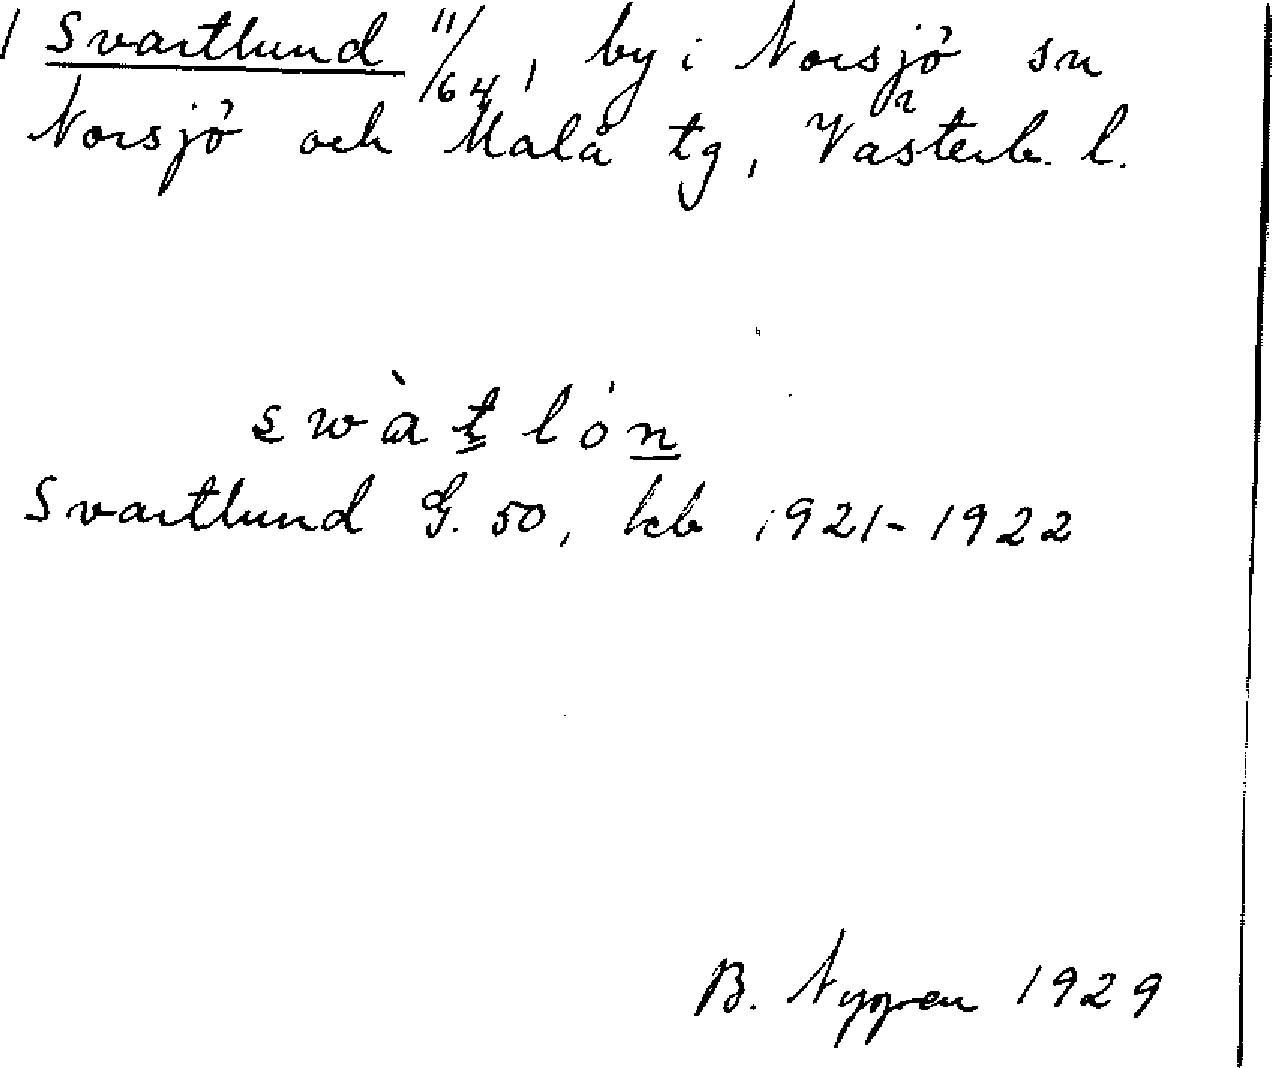 1 Svartlund 11/64, by i Norsjö sn
Norsjö och Malå tg, Västerb. l.
swàt lón
Svartlund G. 50, kb 1921-1922
B. Nygren 1929